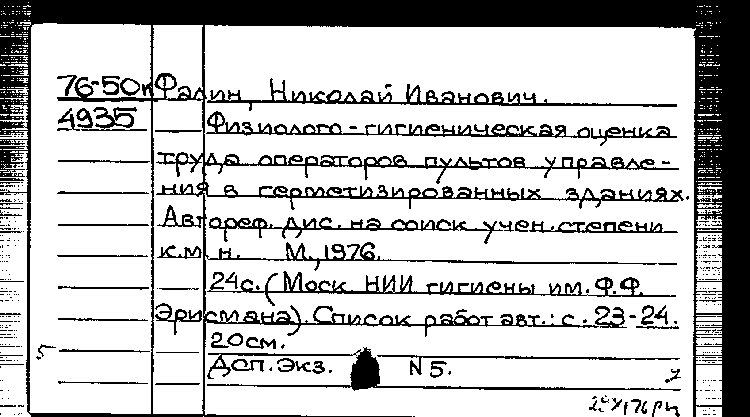 76-50к Фалин, Николай Иванович.
4935 Физиолого-гигиеническая оценка
труда операторов пультов управле-
ния в герметизированных зданиях.
Автореф. дис. на соиск учен.степени
к.м.н. М.,1976.
24с. (Моск НИИ гигиены им. Ф.Ф.
Эрисмана). Список работ авт.: с. 23-24.
20см.
5 Дсп. Экз. N5.